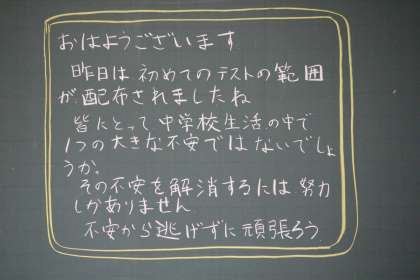 おはようございます
昨日は初めてのテストの範囲
が配布されましたね
皆にとって中学校生活の中で
1つの大きな不安ではないでしょ
うか。
その不安を解消するには努力
しかありません
不安から逃げずに頑張ろう